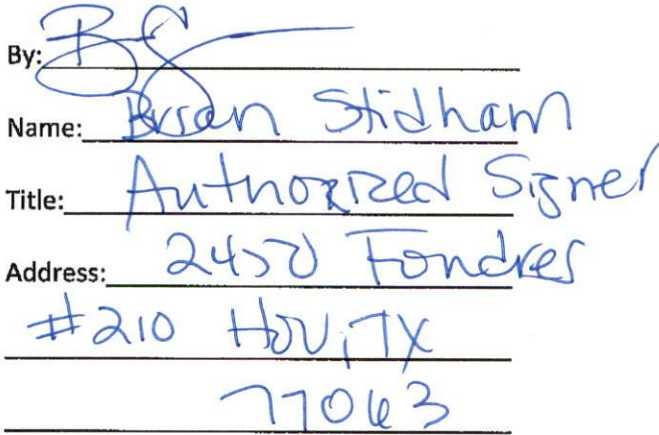 By: BS
Name: Brian Stidham
Title: Authorized Signer
Address: 2450 Fondren
#210 Hou, TX
77063